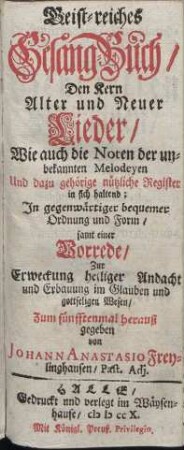 Geist-reiches
Gesang-Buch/
Den Kern
Alter und Neuer
Lieder/
Wie auch die Noten der un-
bekannten Melodeyen
Und dazu gehörige nützliche Register
in sich haltend;
In gegenwärtiger bequemer
Ordnung und Form/
samt einer
Vorrede/
Zur
Erweckung heiliger Andacht
und Erbauung im Glauben und
gottseligen Wesen/
Zum fünfftenmal herauß
gegeben
von
JOHANN ANASTASIO Frey-
linghausen/ Past. Adj.
HALLE/
Gedruckt und verlegt im Wäysen-
hause/ cIɔ Iɔ cc X.
Mit Königl. Preuß. Privilegio.